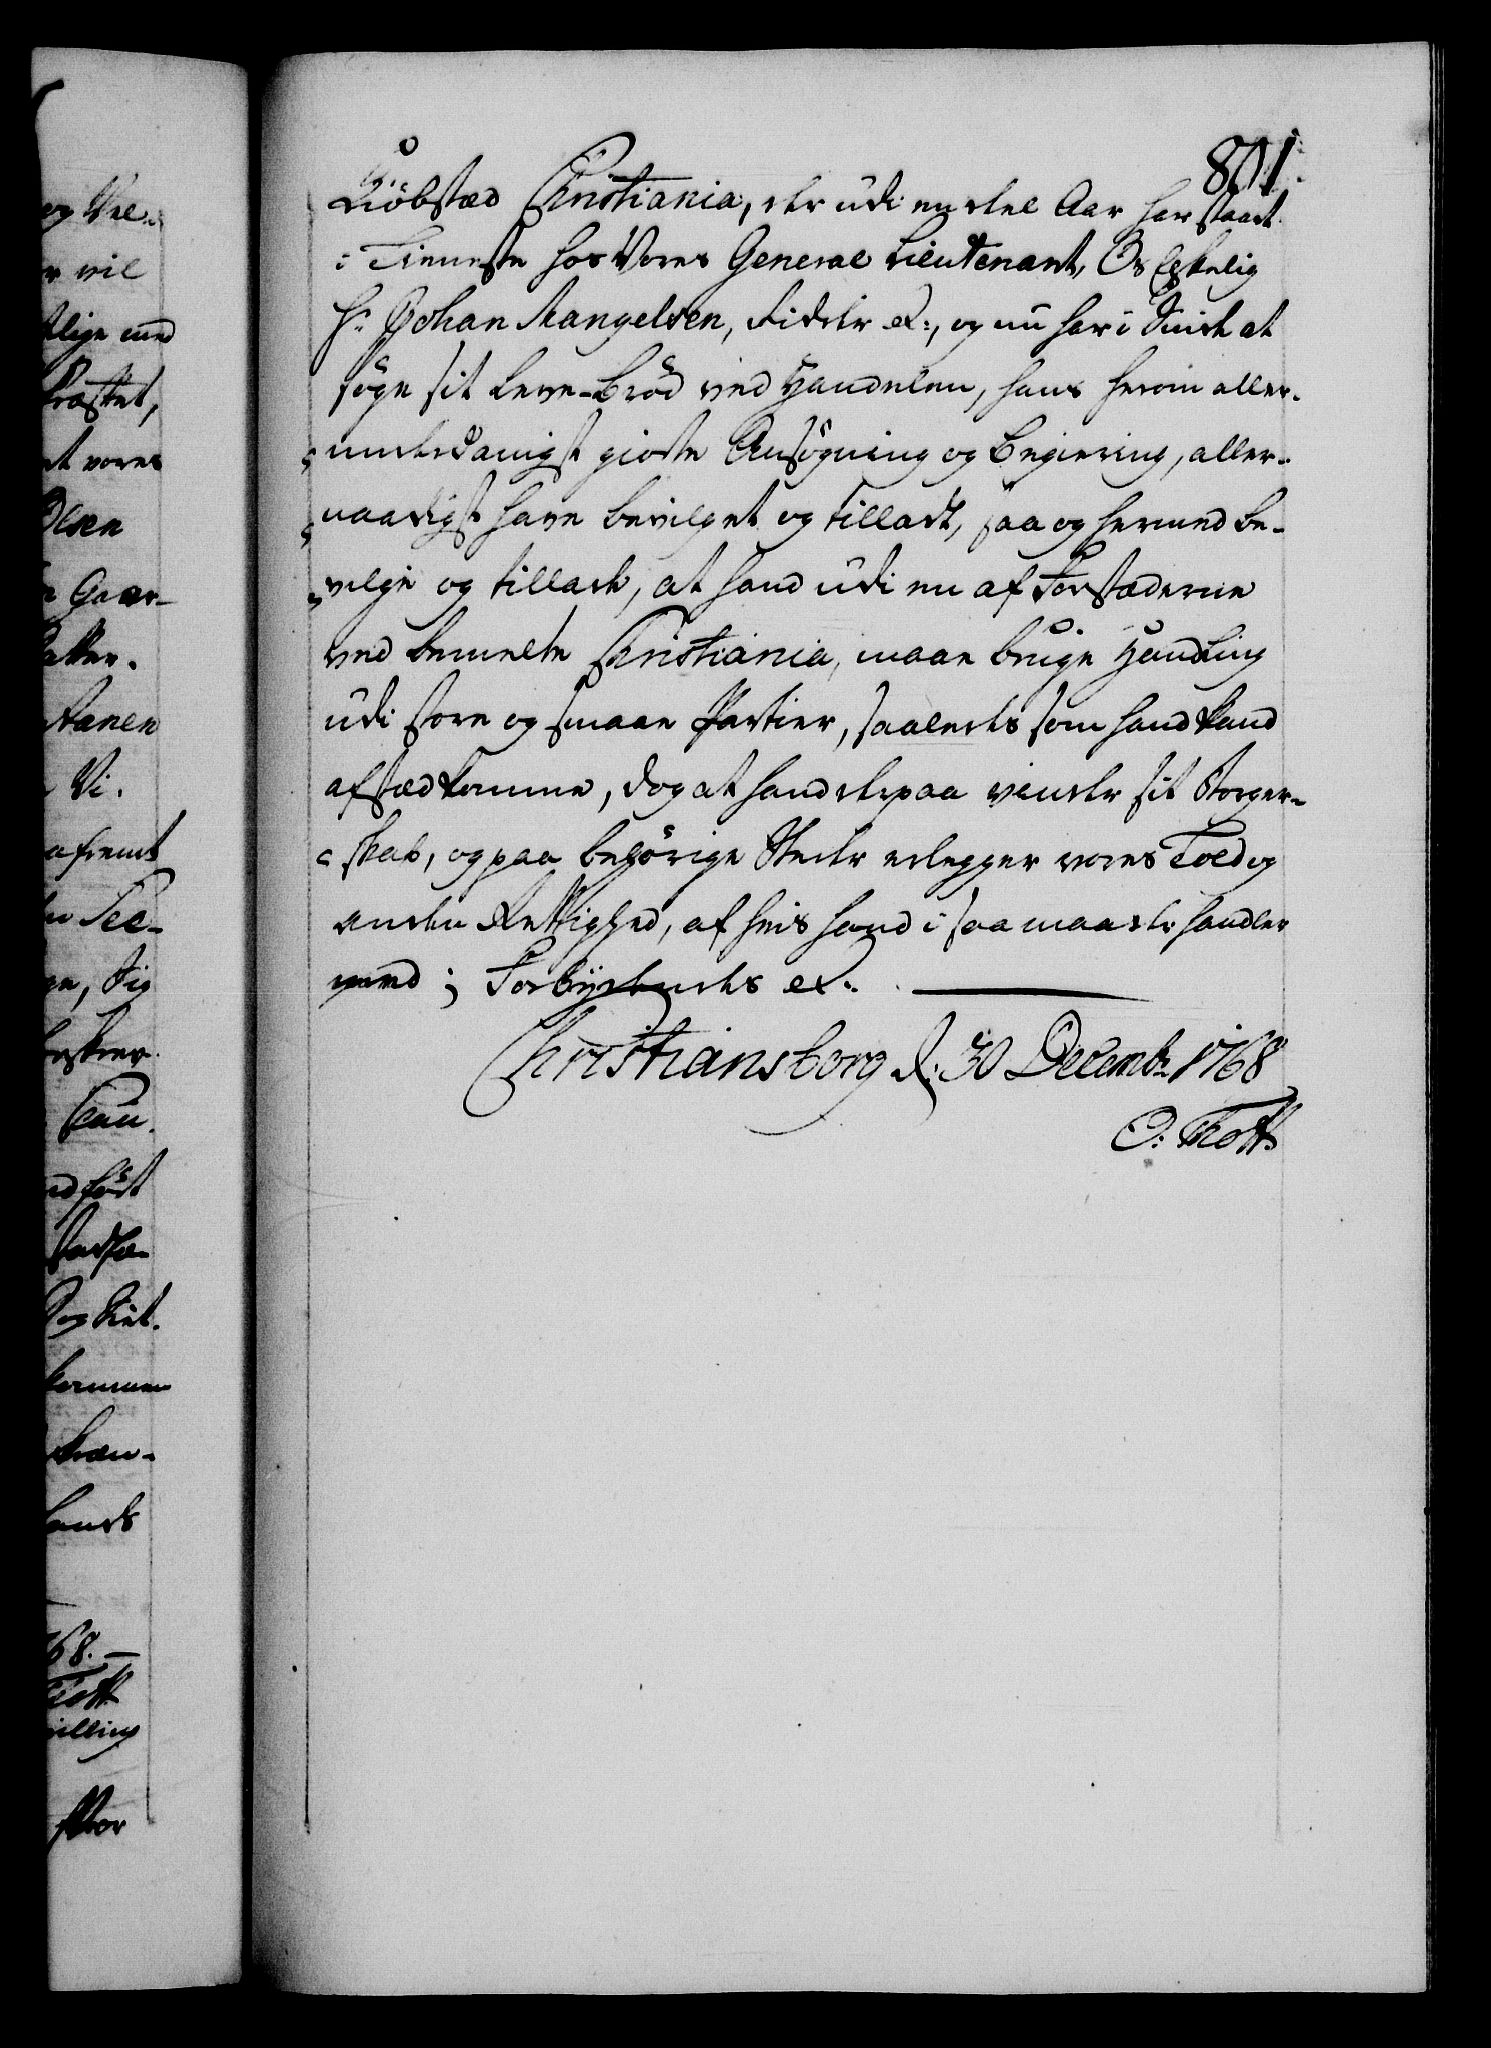 801.
Kiöbstæd Christiania, der udi en deel Aar har staaet
i Tieneste hos Vores General Lieutenant, Os Elskelig
Hr Johan Mangelsen, Ridder etc:, og nu har i Sinde at
söge sit Leve-Bröd ved Handelen, hans herom aller-
underdanigst giorte Ansögning og Begiering, aller-
naadigst have bevilget og tilladt, saa og hermed be-
vilge og tillade, at hand udi en af Forstæderne
ved bemelte Christiania, maae bruge Handling
udi store og smaae Partier, saaledes som hand kand
afsted komme, dog at hand derpaa vinder sit Borger-
skab, og paa behörige Steder erlegger vores Told og
anden Rettighed, af hvis hand i saa maade handler
med; Forbydendes etc.
Christiansborg d: 30 Decembr 1768
O: Thott
og Vel-
er vil
tlige med
et vores
Olsen
Vi.
Sig
68.
Thott